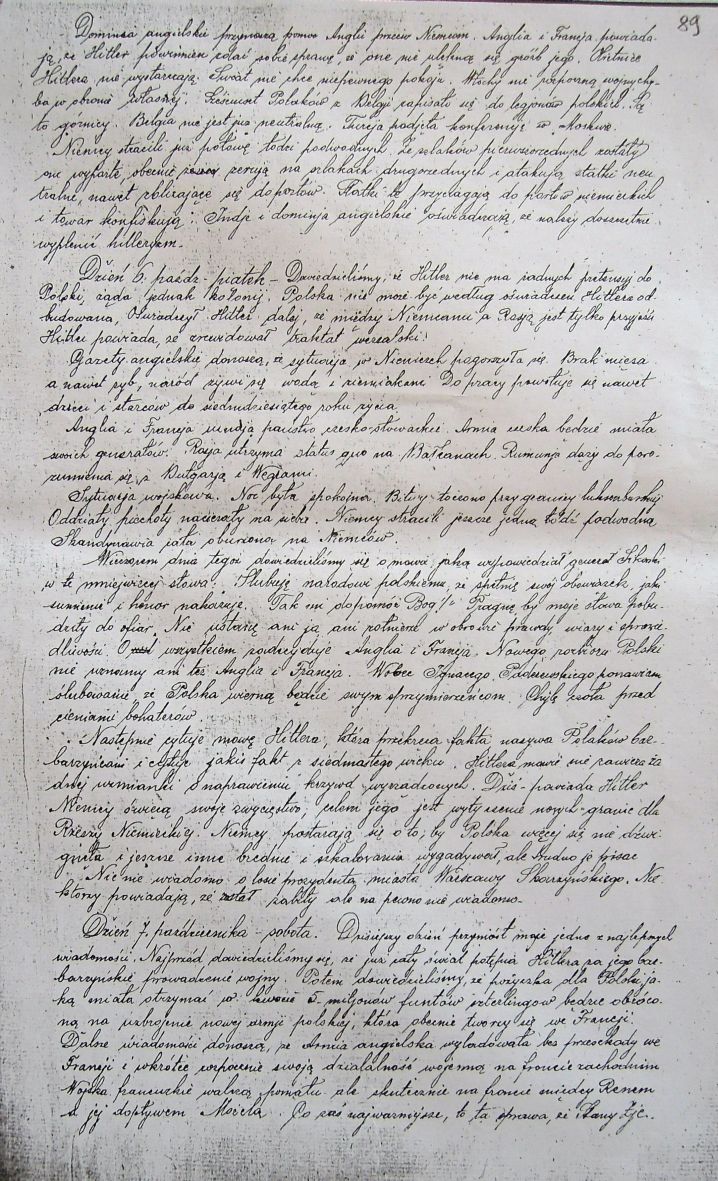 89
Dominia angielskie przyniosą pomoc Anglii przeciw Niemcom. Anglia i Francja powiada-
ją, że Hitler powinien zdać sobie sprawę, że one nie ulękną się gróźb jego. Obietnice
Hitlera nie wystarczają. Świat nie chce niepewnego pokoju. Włochy nie rozpoczną wojny chy-
ba w obronie własnej. Sześciuset Polaków z Belgji zapisało się do legjonów polskich. Są
to górnicy. Belgia nie jest już neutralną. Turcja podjęła konferencję w Moskwie.
Niemcy stracili już połowę łodzi podwodnych. Ze szlaków pierwszorzędnych zostały
one wyparte, obecnie żerują na szlakach drugorzędnych i atakują statki neu-
tralne, nawet zbliżające się do portów. Statki te przyciągają do portów niemieckich
i towar konfiskują. Indje i dominja angielskie oświadczają, że należy doszczętnie
wyplenić hitleryzm.
Dzień 6. paźdz. - piątek - Dowiedzieliśmy, że Hitler nie ma żadnych pretensyj do
Polski, żąda jednak kolonij. Polska nie może być według oświadczeń Hitlera od-
budowana, Oświadczył Hitler dalej, że między Niemcami a Rosją jest tylko przyjaźń
Hitler powiada, że zrewidował traktat wersalski.
Gazety angielskie donoszą, że sytuacja w Niemczech pogorszyła się. Brak mięsa
a nawet ryb, naród żywi się wodą i ziemniakami. Do pracy powołuje się nawet
dzieci i starców do siedmdziesiątego roku życia.
Anglia i Francja uznają państwo czesko-słowackie. Armia czeska będzie miała
swoich generałów. Rosja utrzyma status quo na Bałkanach. Rumunja dąży do poro-
zumienia się z Bułgarją i Węgrami.
Sytuacja wojskowa. Noc była spokojna. Bitwy toczono przy granicy luksemburskiej
Oddziały piechoty nacierały na siebie. Niemcy stracili jeszcze jedną łódź podwodną.
Skandynawia cała oburzona na Niemców.
Wieczorem dnia tegoż dowiedzieliśmy się o mowie, jaką wypowiedział generał Sikorski
w te mniejwięcej słowa: Ślubuję narodowi polskiemu, że spełnię swój obowiązek, jaki
sumienie i honor nakazuje. Tak mi dopomóż Bóg! Pragnę by moje słowa pobu-
dziły do ofiar. Nie ustanę ani ja ani żołnierze w obronie prawdy wiary i sprawie-
dliwości. O wszystkiem zadecyduje Anglia i Francja. Nowego rozbioru Polski
nie uznamy ani też Anglia i Francja. Wobec Ignacego Paderewskiego ponawiam
ślubowanie, że Polska wierną będzie swym sprzymierzeńcom. Chylę czoła przed
cieniami bohaterów.
Następnie cytuje mowę Hitlera, która przekręca fakta nazywa Polaków bar-
barzyńcami i cytuje jakiś fakt z siedmastego wieku. Hitlera mowa nie zawiera ża-
dnej wzmianki o naprawieniu krzywd wyrządzonych. Dziś - powiada Hitler
Niemcy święcą swoje zwycięstwo, celem jego jest wytyczenie nowych granic dla
Rzeszy Niemieckiej. Niemcy postarają się o to, by Polska więcej się nie dźwi-
gnęła i jeszcze inne brednie i szkalowania wygadywał, ale trudno je pisać
Nic nie wiadomo o losie prezydenta miasta Warszawy Starzyńskiego. Nie-
którzy powiadają, że został zabity ale na pewno nie wiadomo.
Dzień 7. października - sobota. Dzisiejszy dzień przyniósł moje jedno z najlepszych
wiadomości. Najprzód dowiedzieliśmy się, że już cały świat potępia Hitlera za jego bar-
barzyńskie prowadzenie wojny. Potem dowiedzieliśmy, że pożyczka dla Polski ja-
ką miała otrzymać w kwocie 5 miljonów funtów szterlingów będzie obróco-
ną na uzbrojenie nowej armji polskiej, która obecnie tworzy się we Francji.
Dalsze wiadomości donoszą, że Armia angielska wylądowała bez przeszkody we
Francji i wkrótce rozpocznie swoją działalność wojenną na froncie zachodnim
Wojska francuskie walczą pomału ale skutecznie na froncie między Renem
a jej dopływem Mozelą. Co zaś najważniejsze, to ta sprawa, że Stany Zje-